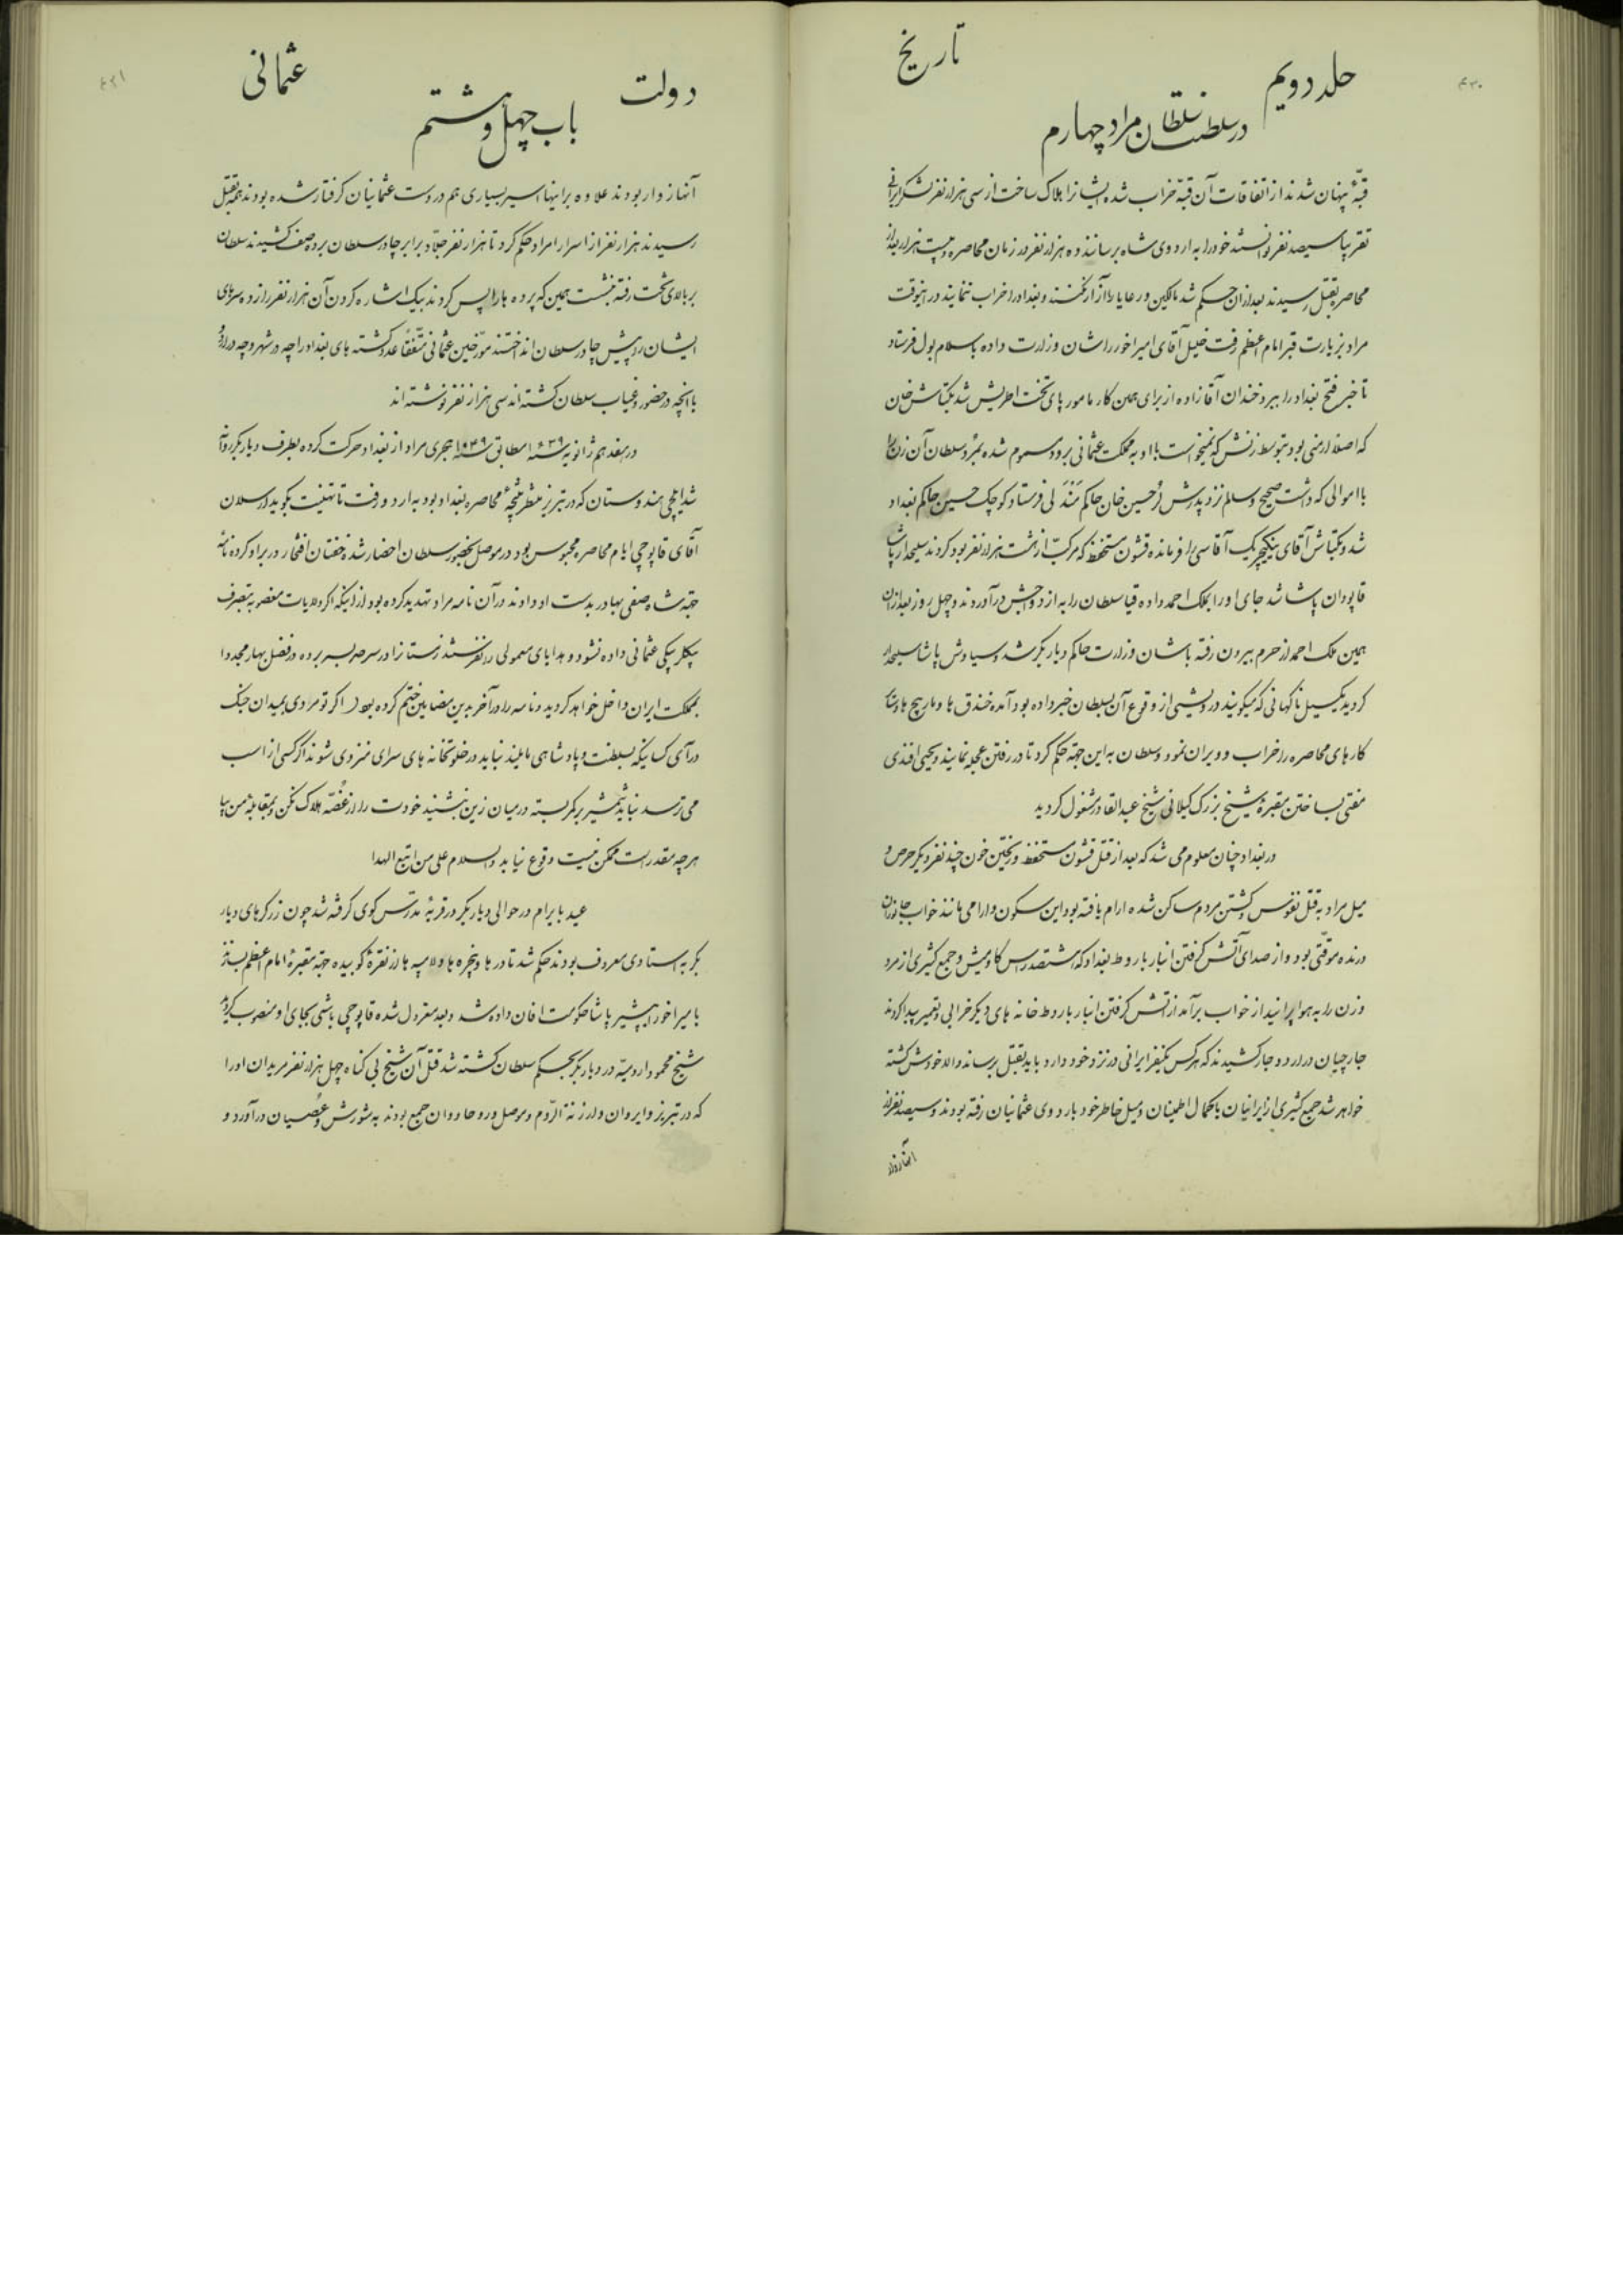 ۴۳۰
جلد دویم
تاریخ
در سلطنت سلطان مراد چهارم
قبّهٔ پنهان شدند از اتفاقات آن قبّه خراب شده ایشانرا هلاک ساخت از سی هزار نفر لشکر ایرانی
تقریبا سیصد نفر توانستند خود را به اردوی شاه برسانند ده هزار نفر در زمان محاصره و بیست هزار بعد از
محاصره بقتل رسیدند بعد از آن حکم شد مالکین و رعایا را آزار نکنند و بغداد را خراب ننمایند در اینوقت
مراد بزیارت قبر امام اعظم رفت خلیل آقای امیراخور را شان وزارت داده باسلامبول فرستاد
تا خبر فتح بغداد را ببرد خندان آقا زاده از برای همین کار مامور پای تخت اطریش شد بکتاش خان
که اصلا ارمنی بود بتوسط زنش که نمیخواست با او به مملکت عثمانی برود مسموم شده بمرد سلطان آن زن را
با اموالی که داشت صحیح و سالم نزد پدرش لُرحسین خان حاکم مَنْدَلی فرستاد کوچک حسین حاکم بغداد
شد و بکتاش آقای ینکیچریک آقاسی را فرمانده قشون مستحفظ که مرکبّ از هشت هزار نفر بود کردند سلیحدار پاشا
قاپودان پاشا شد جای او را بملک احمد داده قیا سلطان را به ازدواجش درآوردند و چهل روز بعد از آن
همین ملک احمد از حرم بیرون رفته با شان وزارت حاکم دیاربکر شد و سیاوش پاشا سلیحدار
کردید یکسیل ناکهانی که میکویند درویشی از وقوع آن بسلطان خبر داده بود آمده خندق ها و مارپیچ ها و سایر
کارهای محاصره را خراب و ویران نمود و سلطان به این جهة حکم کرد تا در رفتن عجله نمایند و یحیی افندی
مفتی بساختن مقبرهٔ شیخ بزرک کیلانی شیخ عبدالقادر مشغول کردید
در بغداد چنان معلوم می شد که بعد از قتل قشون مستحفظ و ریختن خون چند نفر دیکر حرص و
میل مراد به قتل نفوس و کشتن مردم ساکن شده ارام یافته بود این سکون و ارامی مانند خواب جانوران
درنده موقّتی بود و از صدای آتش کرفتن انبار باروط بغداد که هشتصد راس کاومیش و جمع کثیری از مرد
و زن را به هوا پرانید از خواب برآمد از آتش کرفتن انبار باروط خانه های دیکر خرابی و تعمیر پیدا کردند
جارچیان در اردو جار کشیدند که هر کس یکنفر ایرانی در نزد خود دارد باید بقتل برساند والا خودش کشته
خواهد شد جمع کثیری از ایرانیان باکمال اطمینان و میل خاطر خود باردوی عثمانیان رفته بودند و سیصد نفر از
آنها زوار
۴۳۱
دولت
عثمانی
باب چهل و هشتم
آنها زوار بودند علاوه بر اینها اسیر بسیاری هم در دست عثمانیان کرفتار شده بودند همه بقتل
رسیدند هزار نفر از اسرا را مراد حکم کرد تا هزار نفر جلاّد برابر چادر سلطان برده صف کشیدند سلطان
بر بالای تخت رفته بنشست همین که پرده ها را پس کردند بیک اشاره کردن آن هزار نفر را زده سرهای
ایشان را پیش چادر سلطان انداختند مورّخین عثمانی متّفقاً عدد کشته های بغداد را چه در شهر و چه در اردو
با انچه در حضور و غیاب سلطان کشته اند سی هزار نفر نوشته اند
در هفدهم ژانویه سنه ۱۶۳۹ مطابق سنه ۱۰۴۹ هجری مراد از بغداد حرکت کرده بطرف دیاربکر روانه
شد ایلچی هندوستان که در تبریز منتظر نتیجهٔ محاصره بغداد بود به اردو رفت تا تهنیت بکوید ارسلان
آقای قاپوچی ایام محاصره محبوس بود در موصل بحضور سلطان احضار شده خفتان افتخار در بر او کرده نامه
جهة شاه صفی بهادر بدست او دادند در آن نامه مراد تهدید کرده بود از اینکه اکر ولایات مغصوبه بتصرف
بیکلربیکی عثمانی داده نشود و هدایای معمولی را نفرستند زمستانرا در سرحد بسر برده در فصل بهار مجددا
بمملکت ایران داخل خواهد کردید و نامه را در آخر بدین مضامین ختم کرده بود اکر تو مردی بمیدان جنک
درآی کسانیکه بسلطنت و پادشاهی مایلند نباید در خلوتخانه های سرای منزوی شوند اکر کسی از اسب
می ترسد نباید شمشیر بر کمر بسته در میان زین بنشیند خودت را از غُصّه هلاک نکن و بمقابلهٔ من بیا
هر چه مقدر است ممکن نیست وقوع نیابد والسلام علی من اتبع الهدا
عید بایرام در حوالی دیاربکر در قریهٔ مدرّس کوی کرفته شد چون زرکرهای دیار
بکر به استادی معروف بودند حکم شد تا درها و پنجره ها و لامپه ها از نقرهٔ کوبیده جهة مقبرهٔ امام اعظم بسازند
بامیراخور بشیر پاشا حکومت افان داده شد و بعد معزول شده قاپوچی باشی بجای او منصوب کردید
شیخ محمود ارومیّه در دیاربکر بحکم سلطان کشته شد قتل آن شیخ بی کناه چهل هزار نفر مریدان او را
که در تبریز و ایروان و ارزنة الرّوم و موصل و روحا و وان جمع بودند به شورش و عُصیان درآورد و